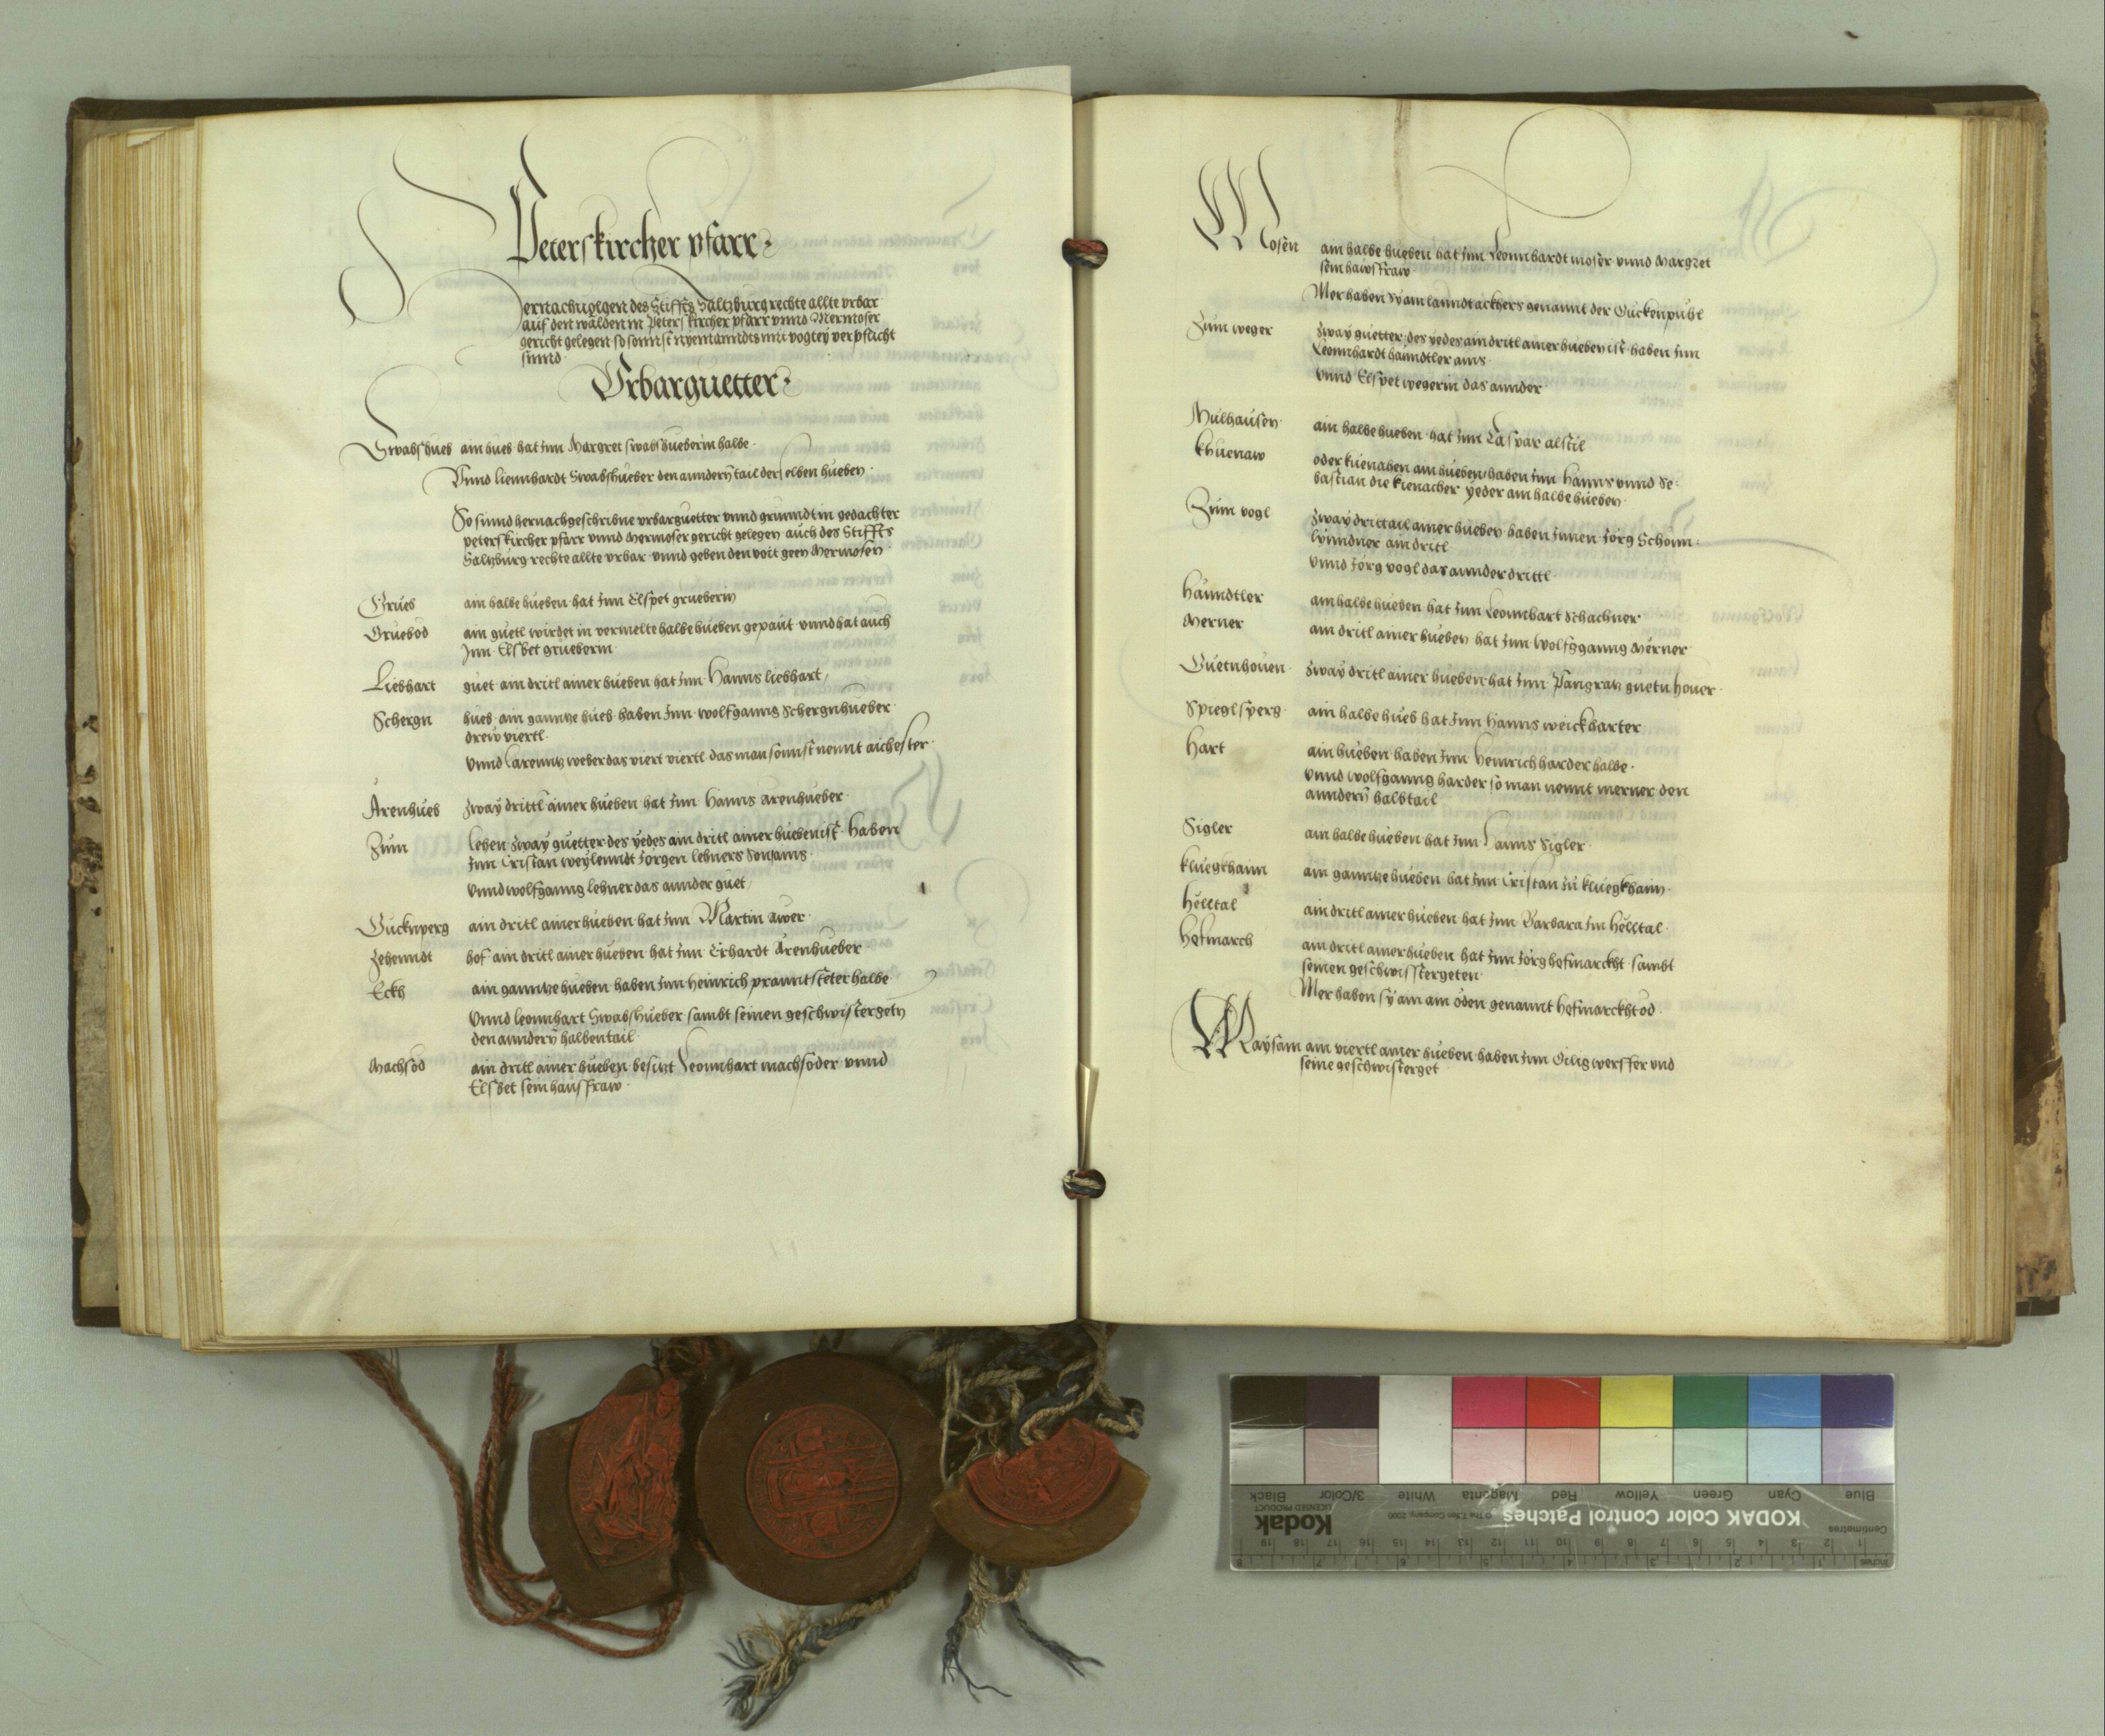 Peterskircher pfarr
Hernachuolgen des Stiffts Saltzburg rechte allte vrbar
auf den wälden in Peterskircher pfarr vnnd Mermoser
gericht gelegen so sonnst nyemanndts mit vogtey verpflicht
sinnd
Vrbarguetter
Swabshueb ain hueb hat Inn Margret swabshueberin halbe
Vnnd liennhardt Swabshueber den anndern tail derselben hueben
So sinnd hernachgeschribne vrbarguetter vnnd grunndt in gedachter
peterskircher pfarr vnnd Mermoser gericht gelegen auch des Stiffts
Saltzburg rechte allte vrbar vnnd geben den voit geen Mermosen
Grueb ain halbe hueben hat Inn Elspet grueberin
Gruebod ain guetl wirdet in vermelte halbe hueben gepaut vnnd hat auch
Inn Elsbet grueberin
Liebhart guet ain dritl ainer hueben hat Inn Hanns liebhart
Schergn hueb ain ganntze hueb haben Inn wolfganng Schergnhueber
drew viertl
vnnd larenntz weber das viert viertl das man sonnst nennt aichester
Arenhueb zway drittl ainer hueben hat Inn Hanns arenhueber
Zum lehen zway guetter des yedes ain dritl ainer hueben ist haben
Inn Cristan weylenndt Jorgen lehners Son ains
Vnnd wolfganng lehner das annder guet
Gucknperg ain dritl ainer hueben hat Inn Martin awer
Zehenndt hof ain dritl ainer hueben hat Inn Erhardt Arenhueber
Eckh ain ganntze hueben haben Inn Heinrich pranntsteter halbe
Vnnd leonnhart Swabshueber sambt seinen geschwistergetn
den anndern halben tail
Machsod ain dritl ainer hueben besitzt Leonnhart machsoder vnnd
Elsbet sein hausfraw
Mosen ain halbe hueben hat Inn Leonnhardt moser vnnd Margret
sein hawsfraw
Mer haben Sy ain lanndtackhers genannt der Guckenpuhl
Zum weger zway guetter des yedes ain dritl ainer hueben ist haben Inn
Leonnhardt hanndtler ains
Vnnd Elspet wegerin das annder
Mulhausen ain halbe hueben hat Inn Caspar alstil
Khuenaw oder kuenahen ain hueben haben Inn Hanns vnnd Se-
bastian die kienacher yeder ain halbe hueben
Zum vogl zway drittail ainer hueben haben Innen Jorg Schonn-
lynndner ain dritl
Vnnd Jorg vogl das annder drittl
Hanndtler ain halbe hueben hat Inn Leonnhart Schachner
Merner ain dritl ainer hueben hat Inn Wolfgganng Merner
Guetnhouen zway dritl ainer hueben hat Inn Pangratz guetnhouer
Spieglsperg ain halbe hueb hat Inn Hanns weickharter
Hart ain hueben haben Inn Heinrich harder halbe
Vnnd wolfganng harder so man nennt merner den
anndern halbtail
Sigler ain halbe hueben hat Inn Hanns Sigler
Kluegkhaim ain ganntze hueben hat Inn Cristan zu kluegkhaim
Helltal ain dritl ainer hueben hat Inn Barbara Im Helltal
Hofmarch ain dritl ainer hueben hat Inn Jorg hofmarckht sambt
seinen geschwisstergeten
Mer haben sy ain am oden genannt Hofmarckhtod
Maysam ain viertl ainer hueben haben Inn Gilig werffer vnd
seine geschwisterget
Blue Cyan Green Yellow Red Magenta White 3/Color Black
KODAK Color Control Patches © The Tiffen Company, 2000 Kodak
LICENSED PRODUCT
Centimetres 1 2 3 4 5 6 7 8 9 10 11 12 13 14 15 16 17 18 19
Inches 1 2 3 4 5 6 7 8